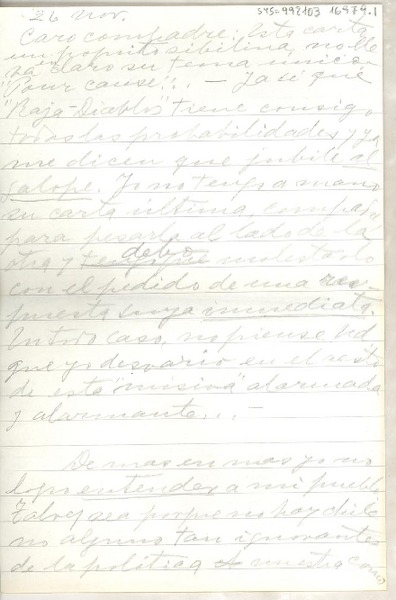 26 Nov.
SYS=992103 16979.1
Caro compadre: Esta carta,
un poquito sibilina, no lle-
va claro su tema único
"Pour cause"!.. – Ya sé que
"Raja-Diablos" tiene consigo
todas las probabilidades, y ya
me dicen que jubile al
galope. Yo no tengo a mano
su carta última, compadre
para pesarla al lado de la
otra y debo molestarlo
con el pedido de una res-
puesta suya inmediata.
En todo caso, no piense Ud
que yo desvarío en el resto
de esta "misiva" alarmada
y alarmante... –
De mas en mas yo no
logro entender a mi pueblo
Talvez sea porque no hay chile
no alguno tan ignorante
de la política nuestra como